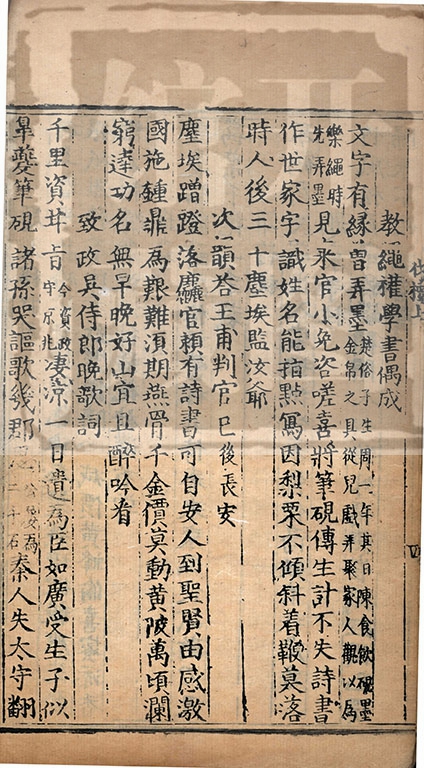 教繩權學書偶成
文字有緣曾弄墨楚俗子生周二年其日陳食飲硯墨金帛之具從兒戲弄聚家人觀以為
樂繩時先弄墨見來官小免咨嗟喜將筆硯傳生計不失詩書
作世家字識姓名能指點寫因梨栗不傾斜着鞭莫落
時人後三十塵埃監汝爺
次韻荅王甫判官巳後長安
塵埃蹭蹬落麤官賴有詩書可自安人到聖賢由感激
國施鍾鼎為艱難須期燕骨千金價莫動黃陂萬頃瀾
窮達功名無早晚好山宜且醉吟看
致政吳侍郎晚歌詞
千里資井肯今資政守京兆凄涼一日遺為臣如廣受生子似
臯夔筆硯諸孫哭謳歌幾郡為二千石秦人失太守翻
伐檀上